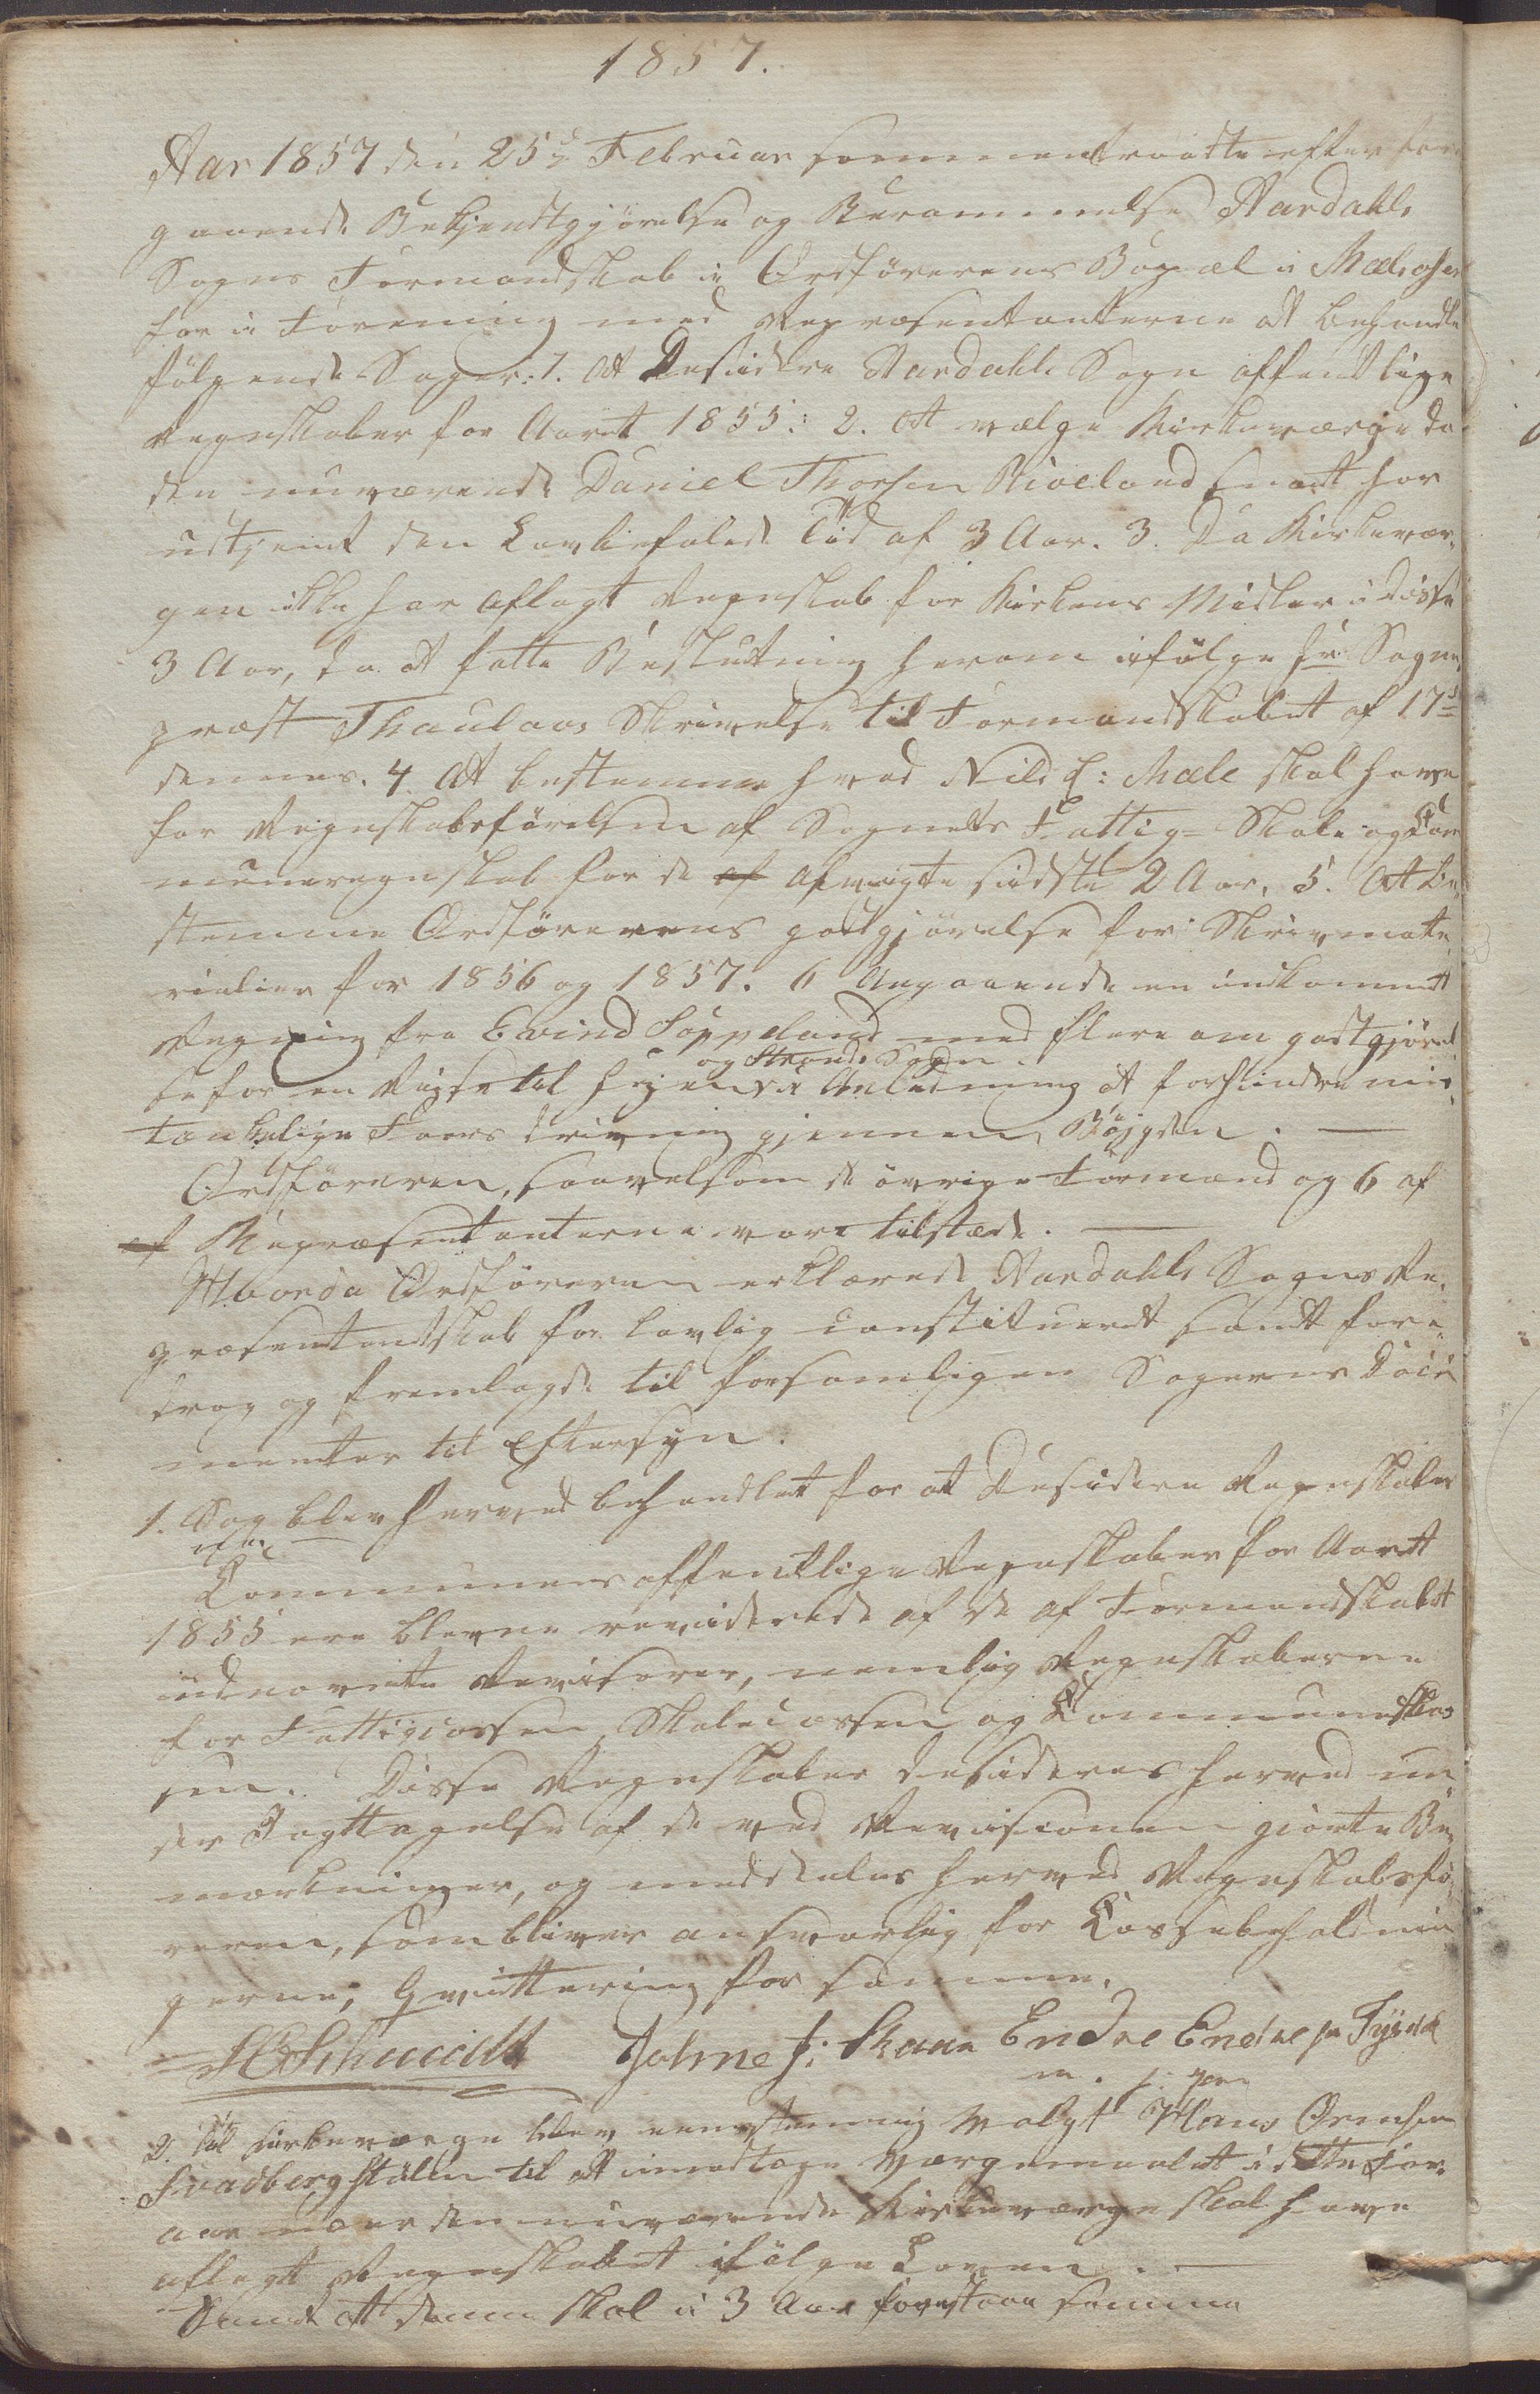 1857.
Aar 1857 den 25de Februar sammentraadte efter fore
gaaende Bekjendtgjørelse og Berammelse Aardahls
Sogns Formandskab i Ordførerens Bopæl i Mælehgen
for i Forening med Repræsentanterne at behandle
følgende Sager: 1. At Desidere Aardahls Sogn offentlige
Regnskaber for Aaret 1855: 2. At vælge Kirkeværge da
den nuværende Daniel Thorsen Riveland snart har
udtjent den Lovbefalede Tid af 3 Aar. 3. Da Kirkevær,
gen ikke har aflagt Regnskab for Kirkens Midler i disse
3 Aar, da at fatte Beslutning herom ifølge hr. Sogne,
præst Thaulaos Skrivelse til Formandskabet af 17de
dennes. 4. At bestemme hvad Nils L: Mæle skal have
for Regnskabsførelsen af Sognets Fattig- Skole og Kom
muneregnskab for de af afvigte sidste 2 Aar, 5. At be,
stemme Ordførerens godtgjørelse for Skrivmate
rialier for 1856 og 1857. 6 Angaaende en indkommet
Regning fra Eivind Soppeland med flere om godtgjørel
og Strands Sogn
se for en Reise til Hejen i Anledning at forhindre mis
tænkelige Faars drivning gjennem Bøjgden. —
Ordføreren, saavelsom de øvrige Formænd og 6 af
af Repræsentanterne vare tilstæde. —
Hvorda Ordføreren erklærede Aardahls Sogns Re,
præsentantskab for lovlig constitueret samt fore,
drog og fremlagde til forsamligen Sagernes Docu
menter til Eftersyn.
1. Sag blev herved behandlet for at Desidere Regnskaber
Communens offentlige Regnskaber for Aaret
1855 ere blevne reviderede af de af Formandskabet
udnævnte Revisorer, nemlig Regnskaberne
for Fattigcassen, Skolecassen og Kommuneskas
sen. Disse Regnskaber desideres herved un,
der Iagttagelse af de ved Revisionen giorte Be,
mærkninger, og meddeles herved Regnskabsfø,
reren, som bliver ansvarlig for Kassebeholdnin
gerne, Qvittering for samme.
Schmidt Johne J: Skaar Endre Endresen Tysdal
m. f. pen
2. Til Kirkeværge blev eenstemmig valgt Hans Ormsen
Svadberg stølen til at imodtage Værgemaalet i dette for,
aar naar den nuværende Kirkeværge skal have
aflagt Regnskabet ifølge Loven. —
Samt at denne skal i 3 Aar forestaae samme